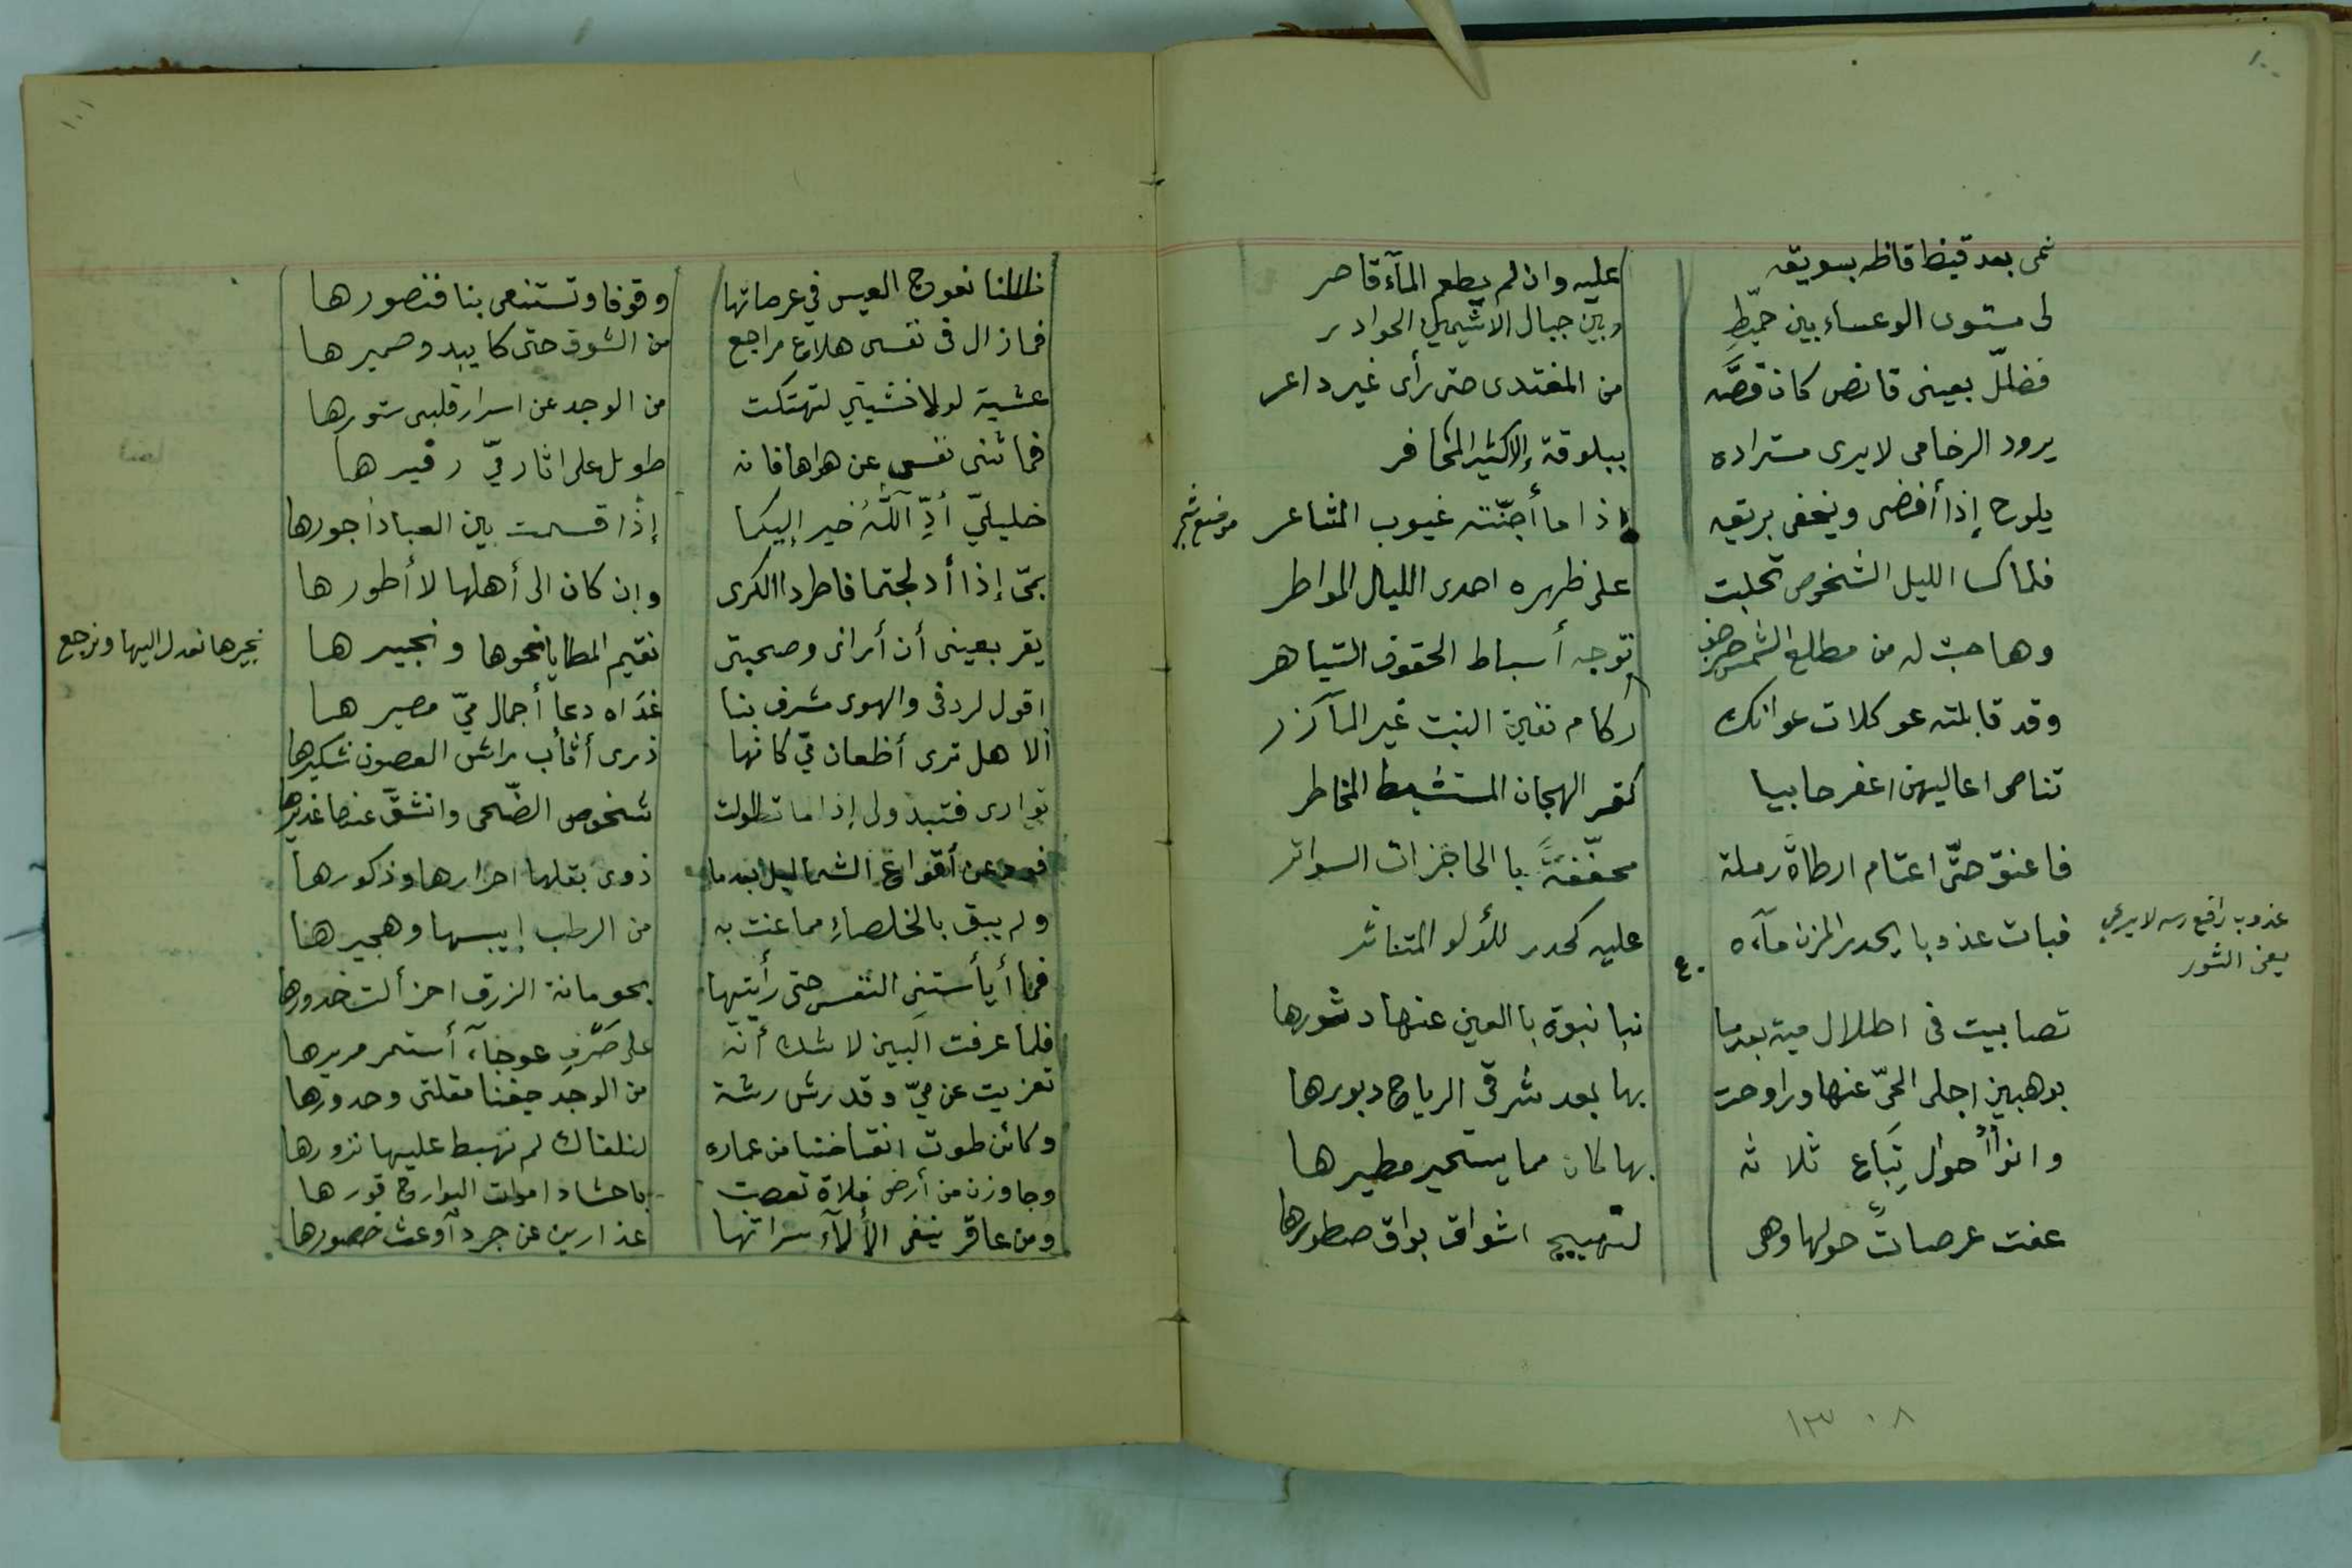 ١٠٠
نمى بعد قيظ قاظه بسويقه
عليه وان لم يطعم المآء قاصر
لى مستوى الوعساء بين حميّط
وبين جبال الاشيمين الحوادر
فضلّ بعينى قانص كان قصّه
من المغتدى حتى رأى غير داعر
يرود الرخامى لا يرى مستراده
ببلوقة إلا كثير المحافر
يلوح إذا أفضى ويخفى بريقه
إذا ما أجنّته غيوب المشاعر
موضع شجر
فلما كسا الليل الشخوص تحلبت
على ظهره احدى الليال المواطر
وهاجت له من مطلع الشمس حرجف
توجه أسباط الحقوف التياهر
وقد قابلته عوكلات عوانك
ركام نفين النبت غير المآزر
تناصى اعاليهن اعفر حابيا
كقرم الهجان المستشيط المخاطر
فاعنق حتّى اعتام ارطاة رملة
محفّفةً با الحاجزات السواتر
فبات عذوبا يحدر المزن مآءه
عليه كحدر للؤلؤ المتناثر
عذوب رافع رسه لا يرعى
يعنى الثور
٤٠
تصابيت فى اطلال مية بعدما
نبا نبوة با العين عنها دثورها
بوهبين اجلى الحىّ عنها وراوحت
بها بعد شرقى الرياح دبورها
وانواُ احوال تباع ثلاثه
بها كان مما يستحير مطيرها
عفت عرصات حولها وهى
لتهييج اشواق بواق صطورها
١٣٠٨
١٠١
ظللنا نعوج العيس في عرصاتها
وقوفا وتستنعى بنا فنصورها
فمازال فى نفسى هلاع مراجع
من الشوق حتى كا يبدو ضميرها
عشية لولا خشيتي لتهتكت
من الوجد عن اسرار قلبى ستورها
فما ثنى نفسى عن هواها فانه
طويل على اثار ميّ زفيرها
خليليّ أدّ اللّٰهُ خير إليكما
إذا قسمت بين العباد أجورها
بمىّ إذا أدلجتما فاطردا الكرى
وإن كان الى أهلها لا أطورها
يقر بعينى أن أرانى وصحبتى
نقيم المطايا نحوها ونجيرها
نجيرها نعدل اليها ونرجع
اقول لردفى والهوى مشرف بنا
غدَاه دعا أجمال ميّ مصيرها
ألا هل ترى أظعان ميّ كانها
ذرى أثأب راش الغصون شكيرها
توارى فتبدولى إذا ما تطاولت
شخوص الضّحى وانشقّ عنها غديرها
فودعن أقواع الشماليل بعدما
ذوى بقلها احرارها وذكورها
ولم يبق بالخلصاءِ مما عنت به
من الرطب إيبسها وهجيرهنا
فما أيأستنى النفس حتى رأيتها
بحومانة الزرق احزألت خدورها
فلما عرفت البين لا شك أنّه
على صَرّفِ عوجآء أستمر مريرها
تعزيت عن ميّ وقد رش رشة
من الوجد جفنا مقلتى وحدورها
وكائن طوت انقاضنا من عماره
لنلقاك لم نهبط عليها نزورها
وجاوزن من أرض فلاة تعصبت
باحشاد اموات البوارح قورها
ومن عاقر ينفى الألآء سراتها
عذارين عن جردآ وعث خصورها